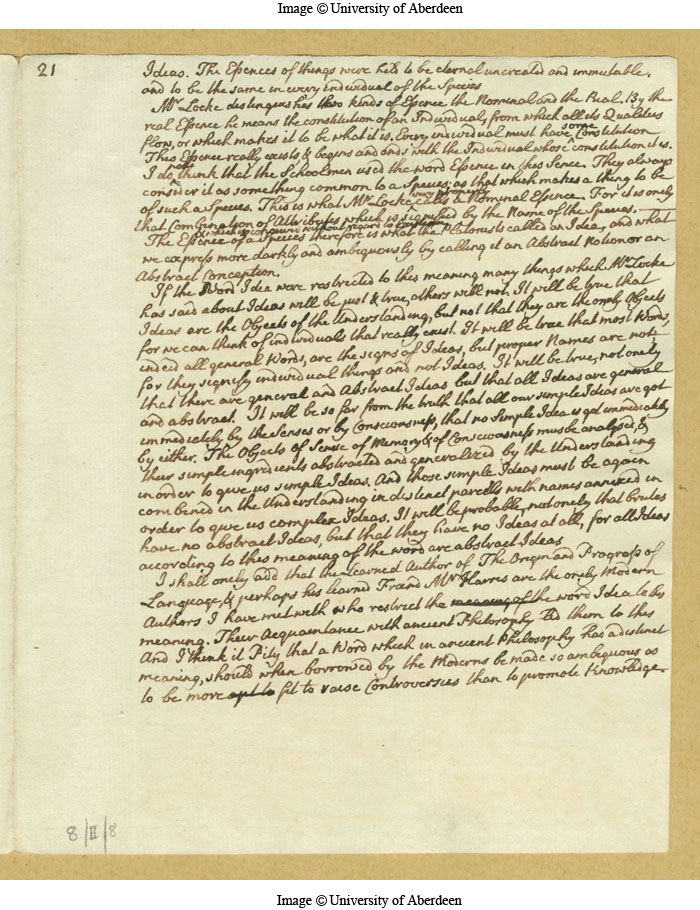 Image © University of Aberdeen
21
Ideas. The Essences of things were held to be eternal uncreated and immutable,
and to be the same in every individual of the Species
Mr Locke distinguishes two kinds of Essence the Nominal and the Real. By the
real Essence he means the constitution of an Individual, from which all its Qualities
flow, or which makes it to be what it is. Every individual must have some Constitution
This Essence really exists & begins and ends with the Individual whose constitution it is.
I do not think that the Schoolmen used the word Essence in this Sence. They always
consider it as something common to a Species; as that which makes a thing to be
of such a Species. This is what Mr Locke very properly calls a Nominal Essence. For it is onely
that Combination of Attributes which is signified by the Name of the Species.
which is conceived without regard to
The Essence of a Species therefore is what the Platonists called an Idea, and what
we express more darkly and ambiguously by calling it an Abstract Notion or an
Abstract Conception.
If the Word Idea were restricted to this meaning many things which Mr Locke
has said about Ideas will be just & true, others will not. It will be true that
Ideas are the Objects of the Understanding, but not that they are the onely Objects
for we can think of individuals that really exist. It will be true that most Words,
indeed all general Words, are the signs of Ideas, but proper Names are not
for they signify individual things and not Ideas. It will be true, not onely
that there are general and Abstract Ideas but that all Ideas are general
and abstract. It will be so far from the truth that all our simple Ideas are got
immediately by the Senses or by Consciousness, that no Simple Idea is got immediately
by either. The Objects of Sense of Memory & of Consciousness must be analysed, &
their simple ingredients abstracted and generalized by the Understanding
in order to give us simple Ideas. And those simple Ideas must be again
combined in the Understanding in distinct parcells with names annexed in
order to give us complex Ideas. It will be probable, not onely that brutes
have no abstract Ideas, but that they have no Ideas at all, for all Ideas
according to this meaning of the word are abstract Ideas
I shall onely add that the Learned Author of The Origin and Progress of
Language, & perhaps his learned Friend Mr Harris are the onely Modern
Authors I have met with who restrict the meaning of the word Idea to this
meaning. Their Acquaintance with ancient Philosophy led them to this
And I think it Pity that a Word which in ancient Philosophy has a distinct
meaning, should when borrowed by the Moderns be made so ambiguous as
to be more apt to fit to raise Controversies than to promote Knowledge
8/II/8
Image © University of Aberdeen